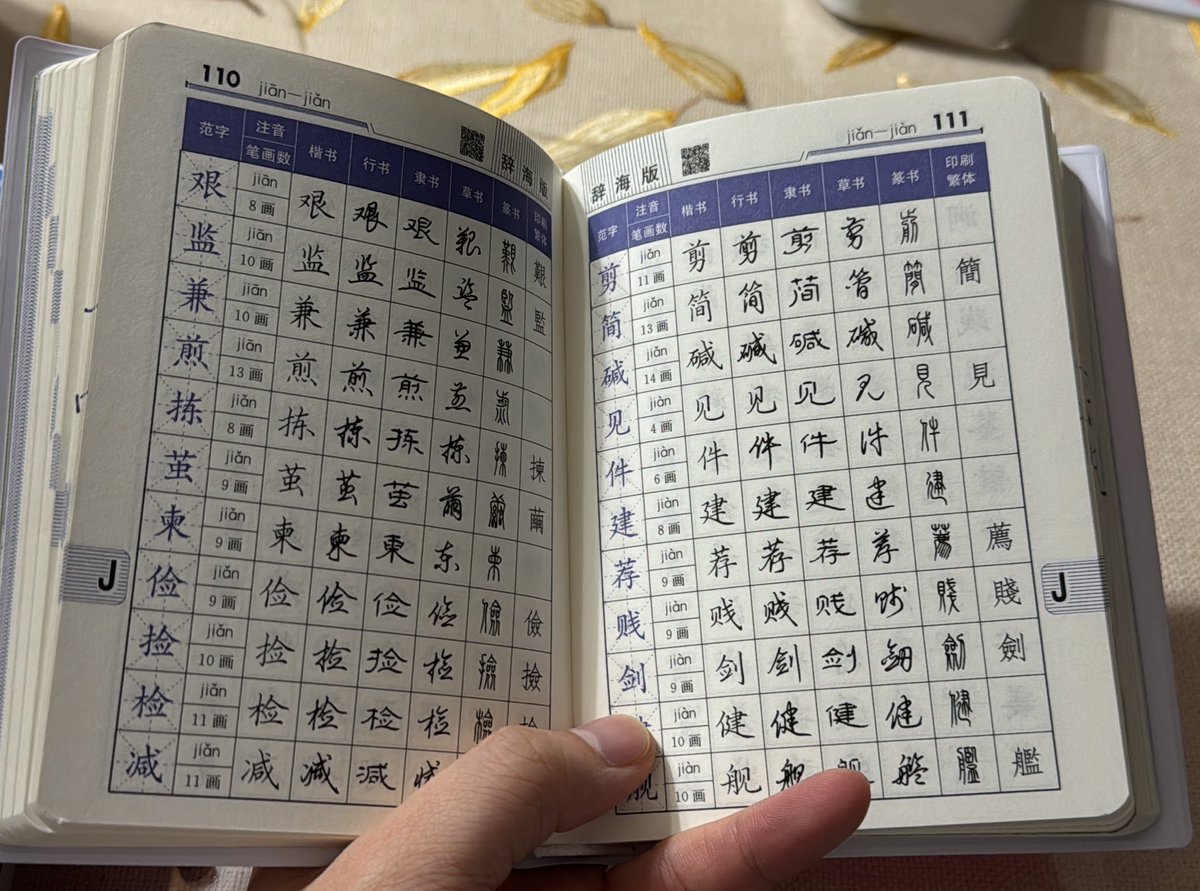 110 jiān—jiǎn
辞海版
范字 注音 笔画数 楷书 行书 隶书 草书 篆书 印刷繁体
艰 jiān 8画 艰 艰 艰 艰 艱 艱
监 jiān 10画 监 监 监 监 監 監
兼 jiān 10画 兼 兼 兼 兼 兼
煎 jiān 13画 煎 煎 煎 煎 煎
拣 jiǎn 8画 拣 拣 拣 拣 揀 揀
茧 jiǎn 9画 茧 茧 茧 繭 繭 繭
柬 jiǎn 9画 柬 柬 柬 柬 柬
俭 jiǎn 9画 俭 俭 俭 俭 儉 儉
捡 jiǎn 10画 捡 捡 捡 捡 撿 撿
检 jiǎn 11画 检 检 检 检 檢
减 jiǎn 11画 减 减 减
J
jiǎn—jiàn 111
辞海版
范字 注音 笔画数 楷书 行书 隶书 草书 篆书 印刷繁体
剪 jiǎn 11画 剪 剪 剪 剪 剪
简 jiǎn 13画 简 简 简 简 簡 簡
碱 jiǎn 14画 碱 碱 碱 碱 碱
见 jiàn 4画 见 见 见 见 見 見
件 jiàn 6画 件 件 件 件 件
建 jiàn 8画 建 建 建 建 建
荐 jiàn 9画 荐 荐 荐 荐 薦 薦
贱 jiàn 9画 贱 贱 贱 贱 賤 賤
剑 jiàn 9画 剑 剑 剑 劍 劍 劍
jiàn 10画 健 健 健 健 健
舰 jiàn 10画 舰 舰 舰 舰 艦 艦
J